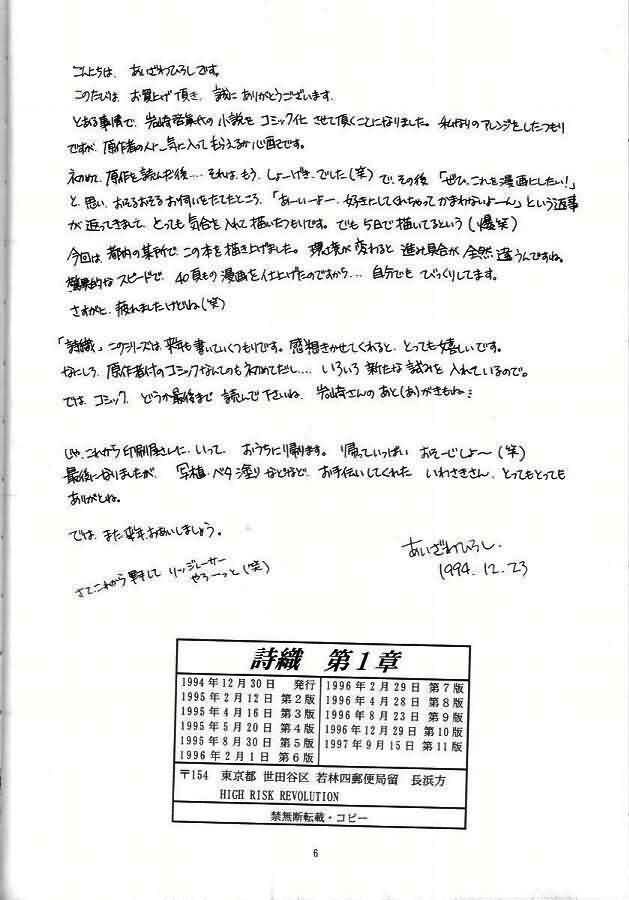 こんにちは、あいざわひろしです。
このたびは、お買上げ頂き、誠にありがとうございます。
とある事情で、岩崎啓眞代の小説をコミック化させて頂くことになりました。私なりのアレンジをしたつもり
ですが、原作者の人に気に入ってもらえるか心配です。
初めて、原作を読んだ後… それは、もう、しょーげき、でした(笑)で、その後「ぜひ、これを漫画にしたい!」
と、思い、おそるおそるお伺いをたてたところ、「あーいーよー、好きにしてくれちゃってかまわないよーん」という返事
が返ってきまして、とっても気合を入れて描いたつもりです。でも5日で描いてるという(爆笑)
今回は、都内の某所で、この本を描き上げました。環境が変わると進み具合が全然違うんですね。
驚異的なスピードで、40頁もの漫画を仕上げたのですから… 自分でもびっくりしてます。
さすがに、疲れましたけどね(笑)
「詩織」このシリーズは、来年も書いていくつもりです。感想きかせてくれると、とっても嬉しいです。
なにしろ、原作者付のコミックなんてのも初めてだし… いろいろ新たな試みを入れているので。
では、コミック、どうか最後まで読んで下さいね、岩崎さんのあと(あ)がきもね
じゃ、これから印刷屋さんに、いって、おうちに帰ります。帰っていっぱいおそーじしよ〜(笑)
最後になりましたが、写植・ベタ塗りなどなど、お手伝いしてくれた いわさきさん、とってもとっても
ありがとね。
では、また来年、おあいしましょう。
さて、これから して リッジレーサー
やろーっと(笑)
あいざわひろし
1994.12.23
詩織 第1章
1994年12月30日 発行
1995年2月12日 第2版
1995年4月16日 第3版
1995年5月20日 第4版
1995年8月30日 第5版
1996年2月1日 第6版
1996年2月29日 第7版
1996年4月28日 第8版
1996年8月23日 第9版
1996年12月29日 第10版
1997年9月15日 第11版
〒154 東京都 世田谷区 若林四郵便局留 長浜方
HIGH RISK REVOLUTION
禁無断転載・コピー
6